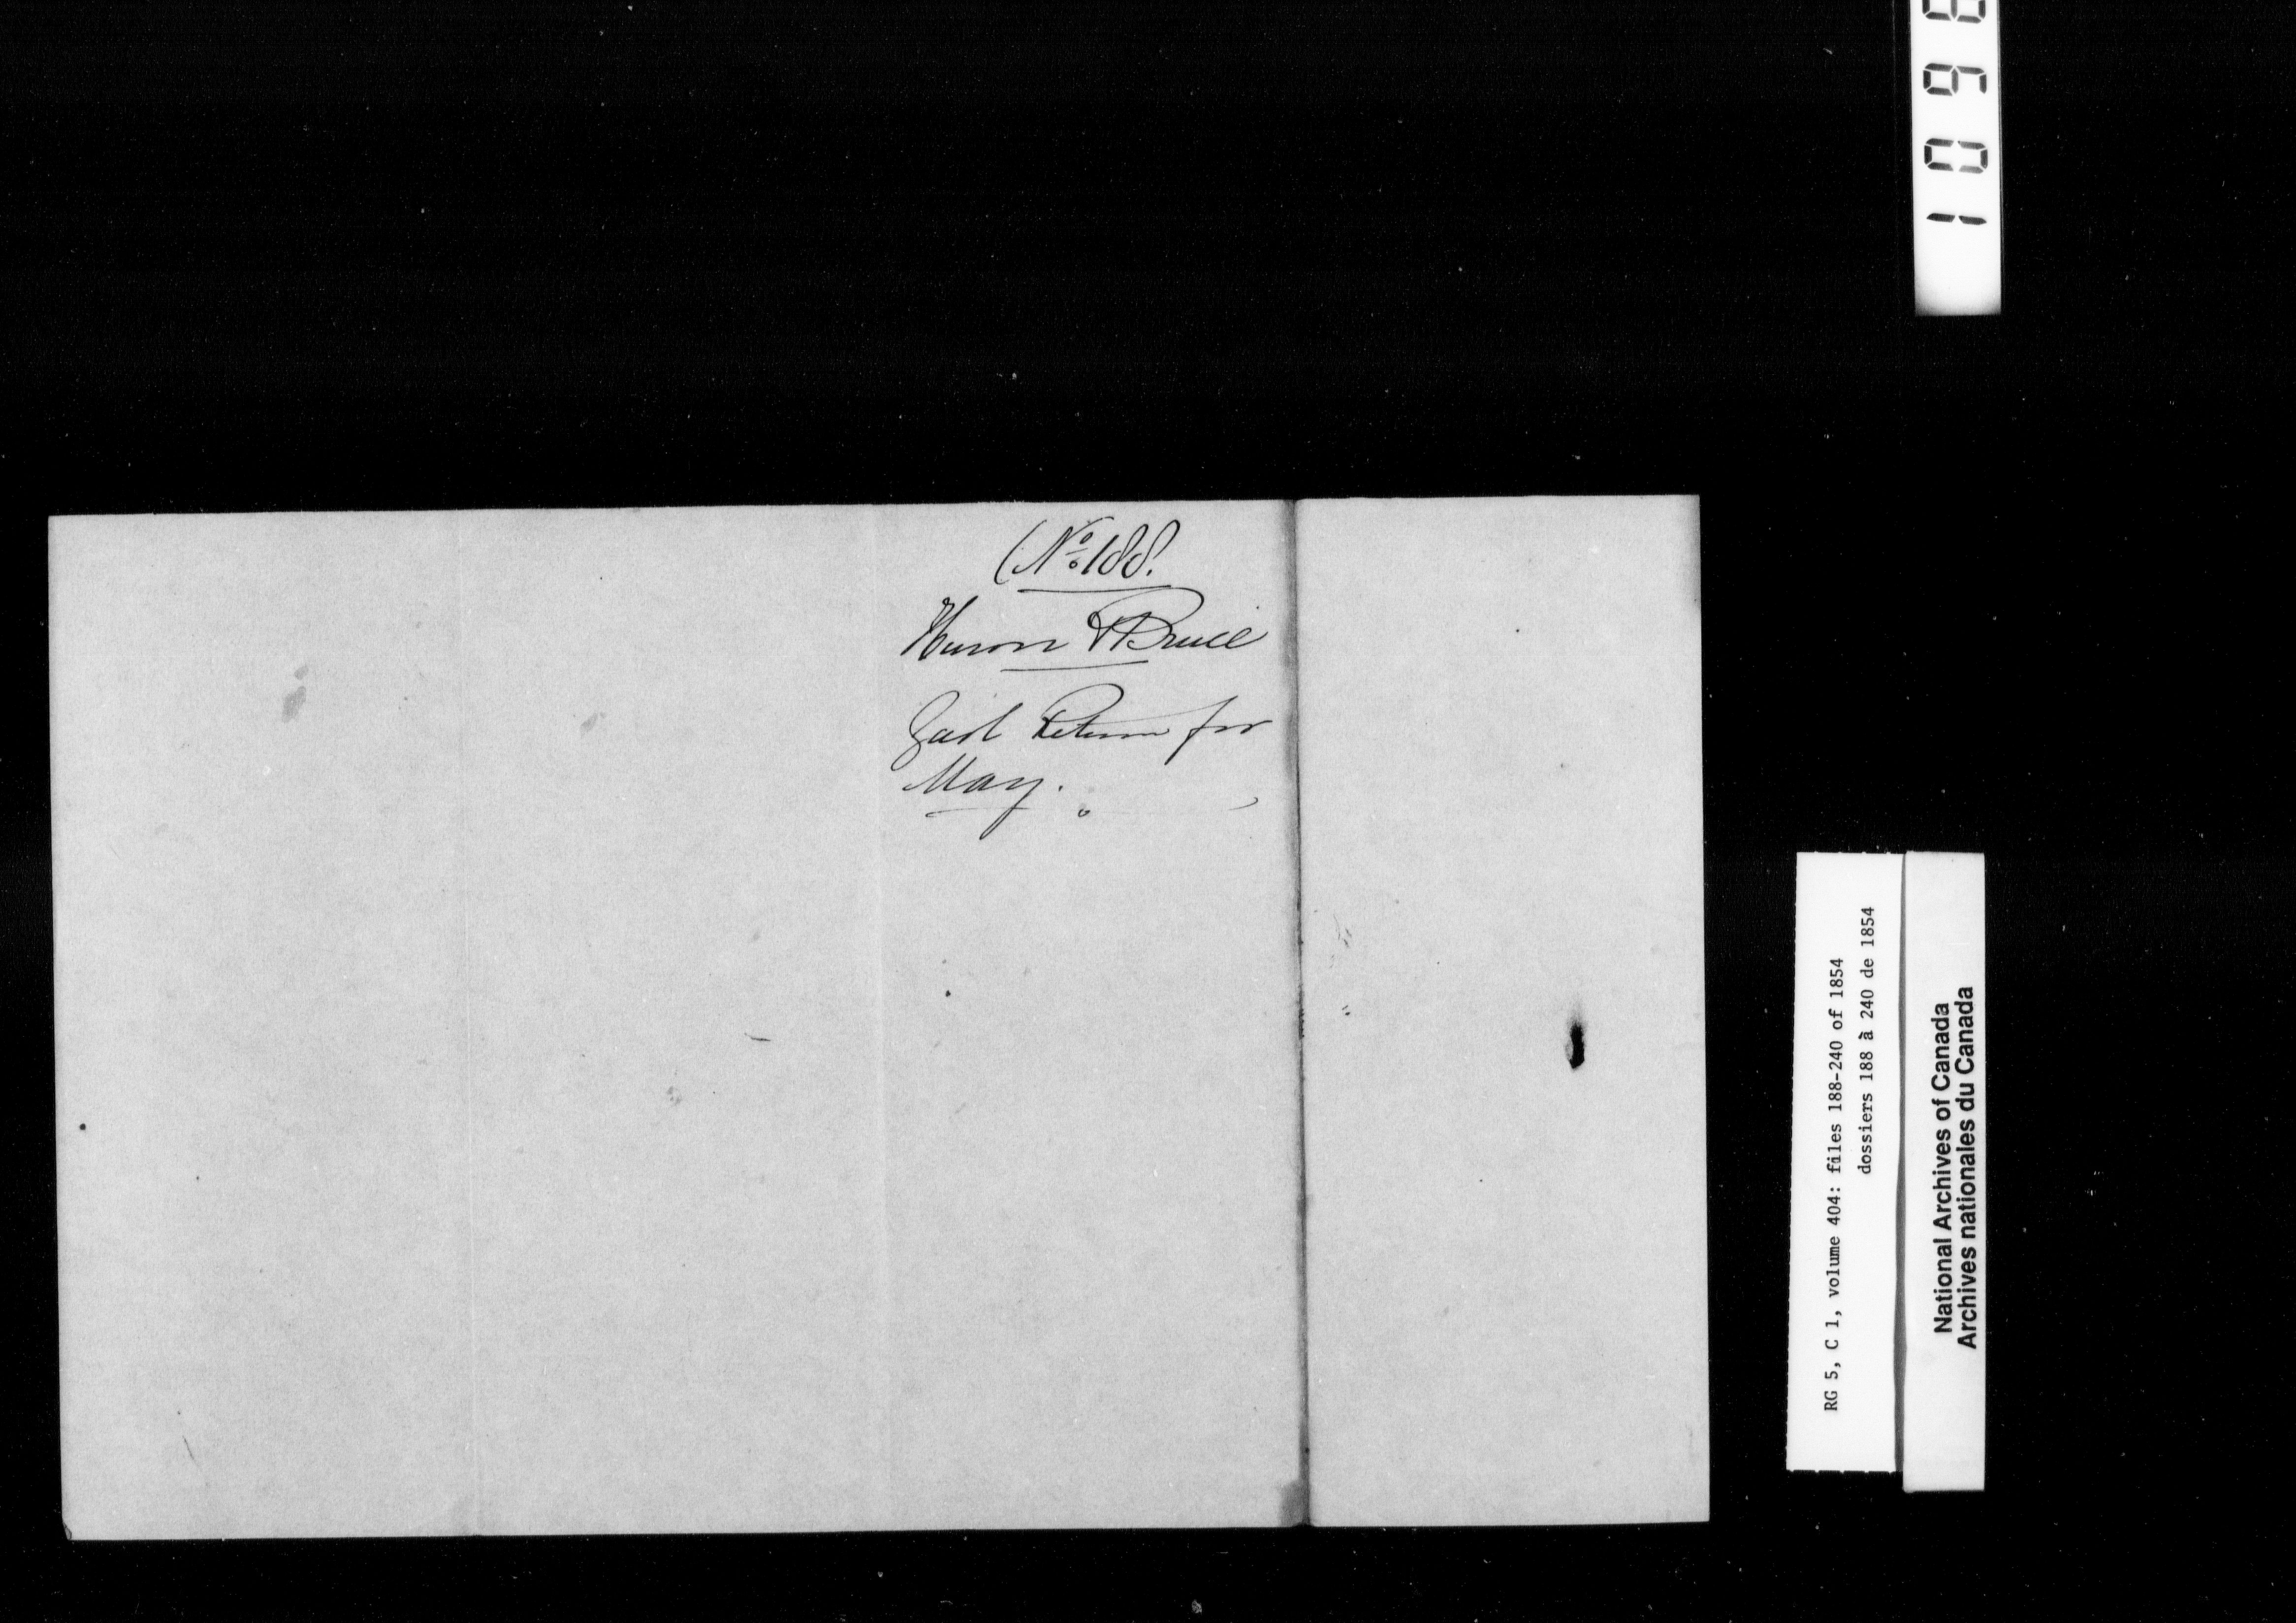 (No. 188.
Huron & Bruce
Gaol Return for
May.
RG 5, C 1, volume 404: files 188-240 of 1854
dossiers 188 à 240 de 1854
National Archives of Canada
Archives nationales du Canada